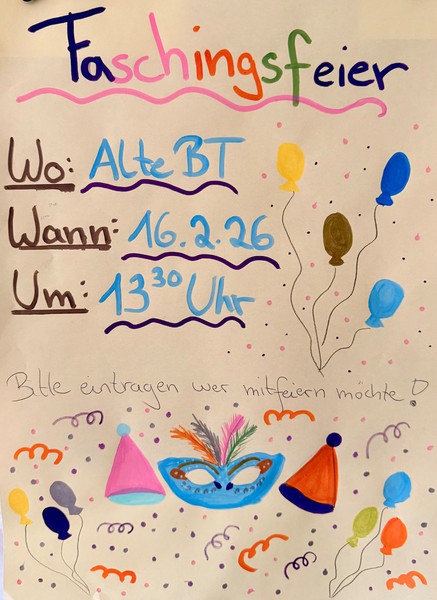 Faschingsfeier
Wo: Alte BT
Wann: 16.2.26
Um: 13³⁰ Uhr
Bitte eintragen wer mitfeiern möchte!